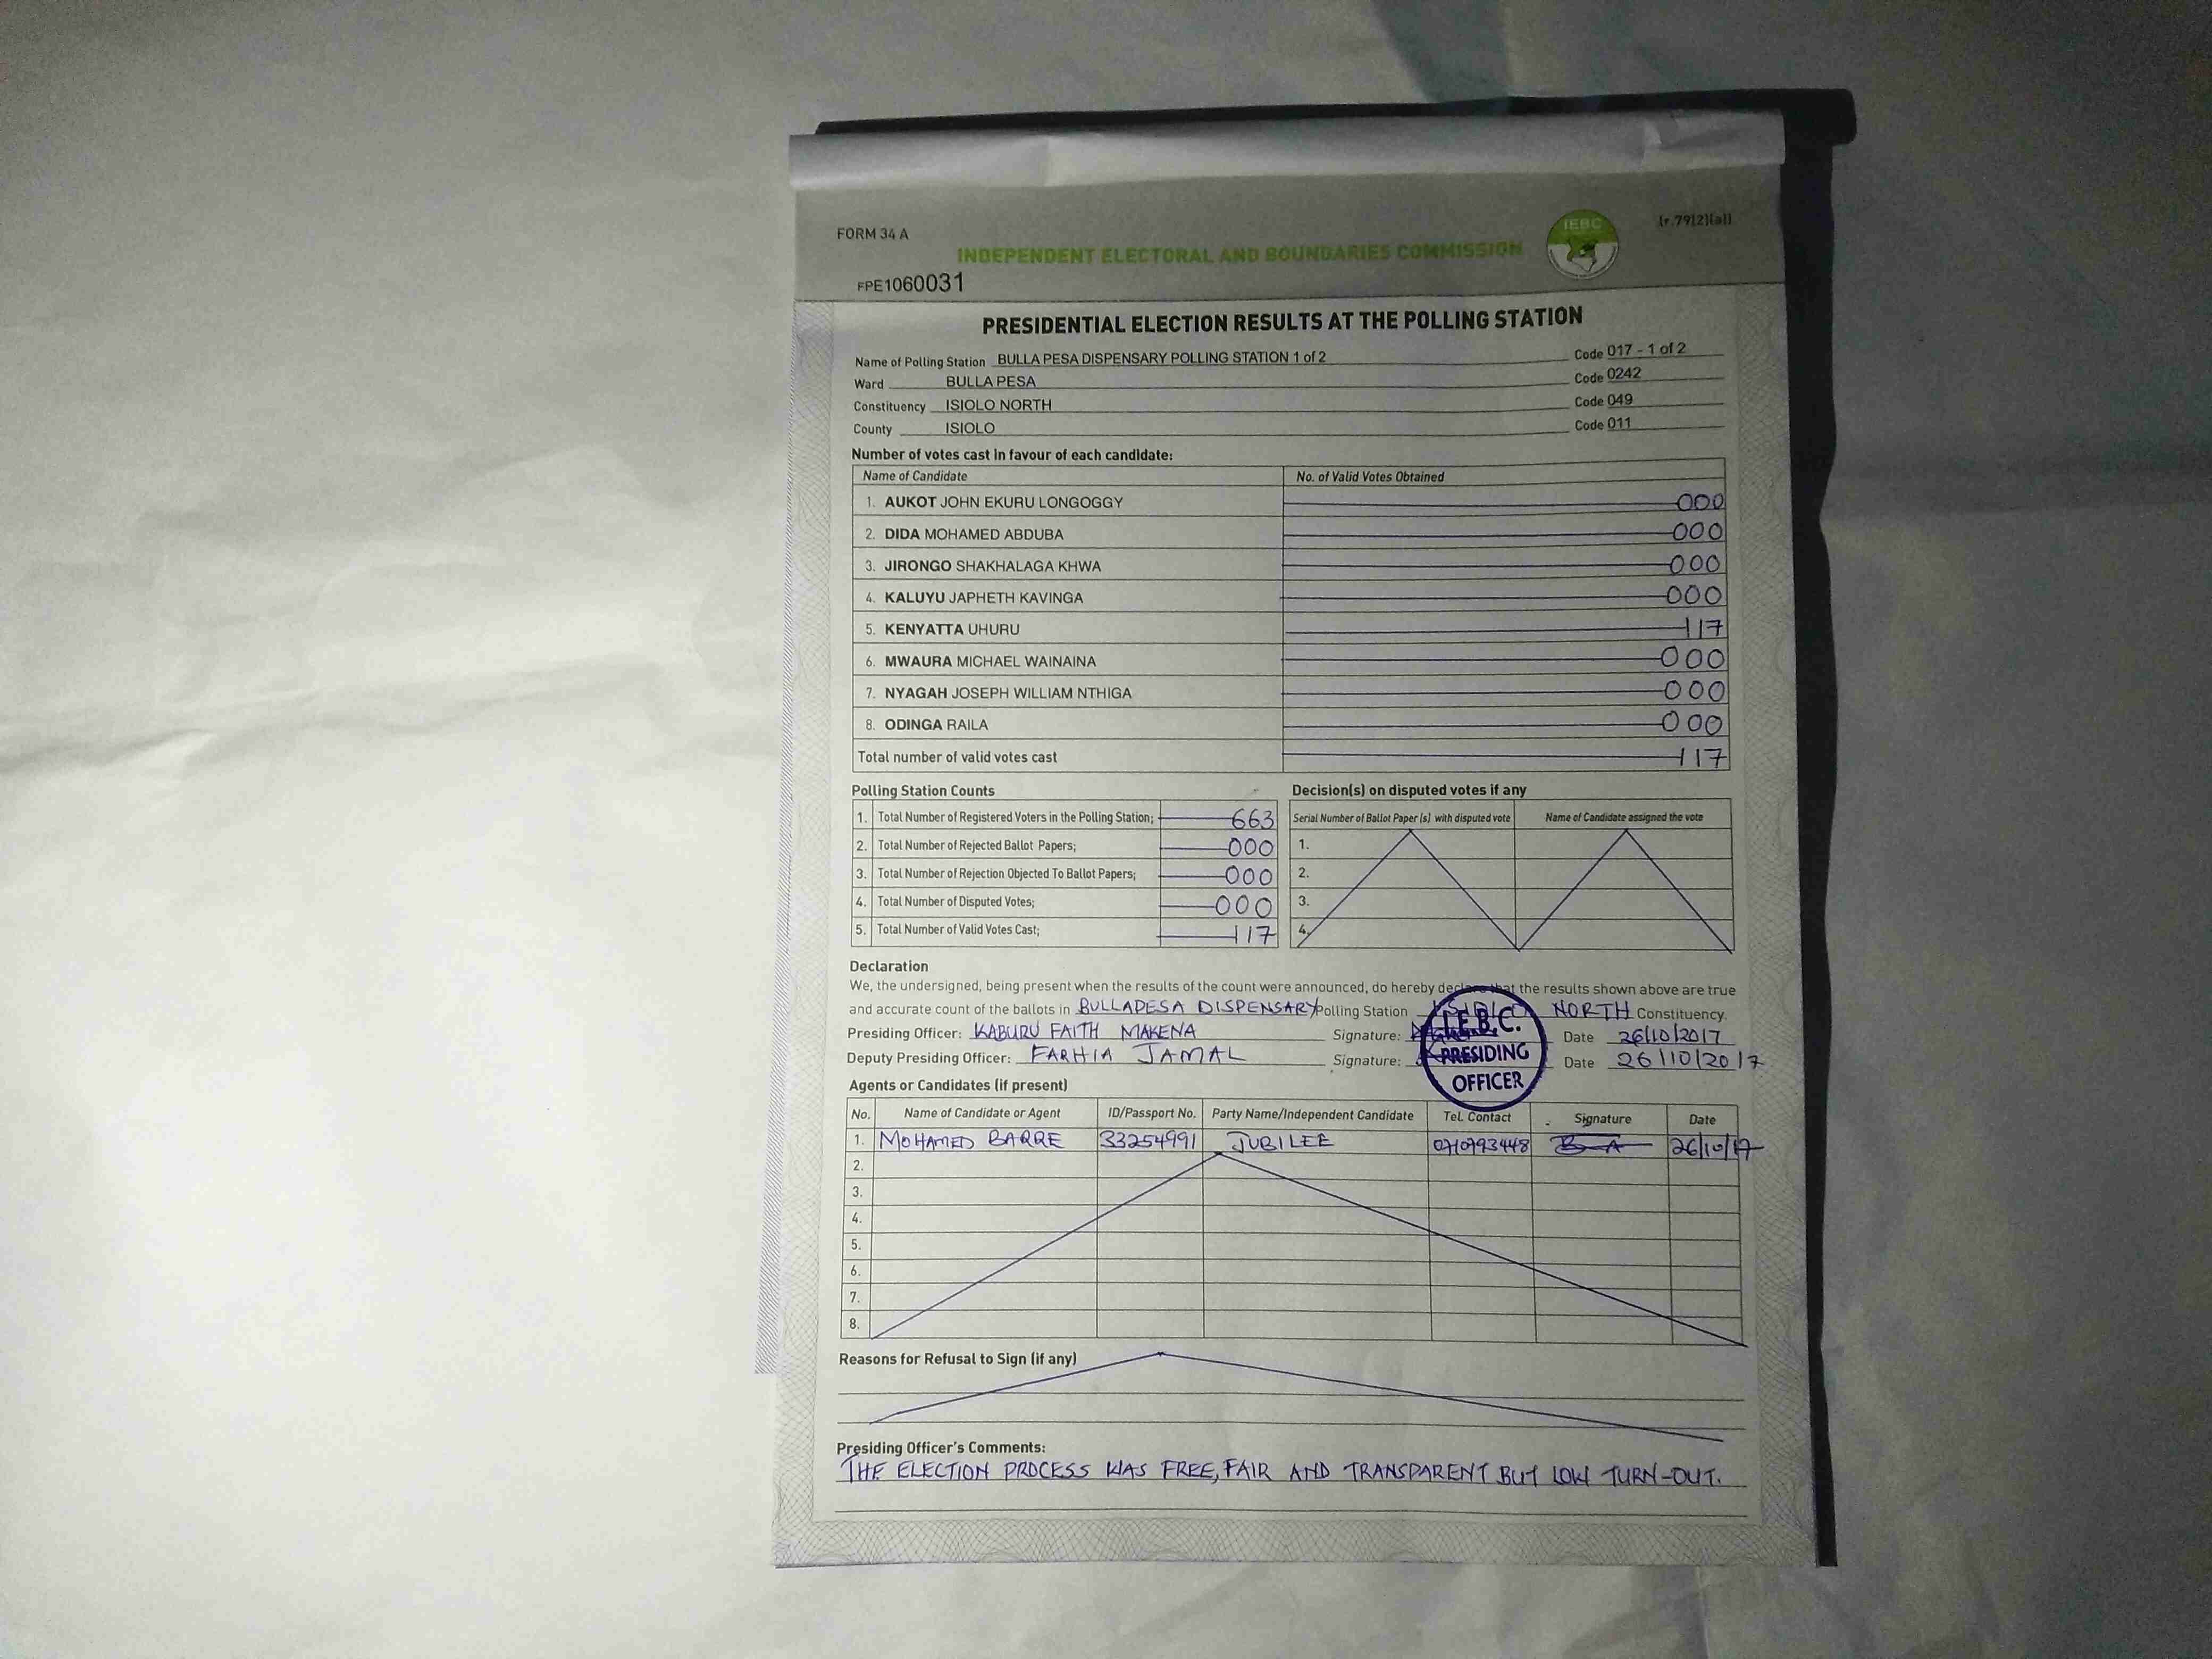 FORM 34 A
IEBC
(r.79(2)(a))
INDEPENDENT ELECTORAL AND BOUNDARIES COMMISSION
FPE1060031
PRESIDENTIAL ELECTION RESULTS AT THE POLLING STATION
Name of Polling Station BULLA PESA DISPENSARY POLLING STATION 1 of 2 Code 017 - 1 of 2
Ward BULLA PESA Code 0242
Constituency ISIOLO NORTH Code 049
County ISIOLO Code 011
Number of votes cast in favour of each candidate:
Name of Candidate No. of Valid Votes Obtained
1. AUKOT JOHN EKURU LONGOGGY 000
2. DIDA MOHAMED ABDUBA 000
3. JIRONGO SHAKHALAGA KHWA 000
4. KALUYU JAPHETH KAVINGA 000
5. KENYATTA UHURU 117
6. MWAURA MICHAEL WAINAINA 000
7. NYAGAH JOSEPH WILLIAM NTHIGA 000
8. ODINGA RAILA 000
Total number of valid votes cast 117
Polling Station Counts
1. Total Number of Registered Voters in the Polling Station; 663
2. Total Number of Rejected Ballot Papers; 000
3. Total Number of Rejection Objected To Ballot Papers; 000
4. Total Number of Disputed Votes; 000
5. Total Number of Valid Votes Cast; 117
Decision(s) on disputed votes if any
Serial Number of Ballot Paper (s) with disputed vote Name of Candidate assigned the vote
1.
2.
3.
4.
Declaration
We, the undersigned, being present when the results of the count were announced, do hereby declare that the results shown above are true
and accurate count of the ballots in BULLAPESA DISPENSARY Polling Station ISIOLO NORTH Constituency.
Presiding Officer: KABURU FAITH MAKENA Signature: Date 26/10/2017
Deputy Presiding Officer: FARHIA JAMAL Signature: Date 26/10/2017
I.E.B.C.
PRESIDING
OFFICER
Agents or Candidates (if present)
No. Name of Candidate or Agent ID/Passport No. Party Name/Independent Candidate Tel. Contact Signature Date
1. MOHAMED BARRE 33254991 JUBILEE 0710793448 26/10/17
2.
3.
4.
5.
6.
7.
8.
Reasons for Refusal to Sign (if any)
Presiding Officer's Comments:
THE ELECTION PROCESS WAS FREE, FAIR AND TRANSPARENT BUT LOW TURN-OUT.